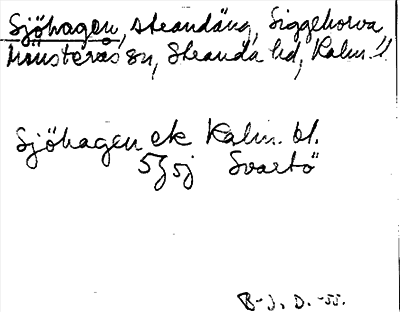 Sjöhagen, strandäng, Siggehorva,
Mönsterås sn, Stranda hd, Kalm. l.
Sjöhagen ek Kalm. bl.
5G5j Svartö
B-J. D. -55.